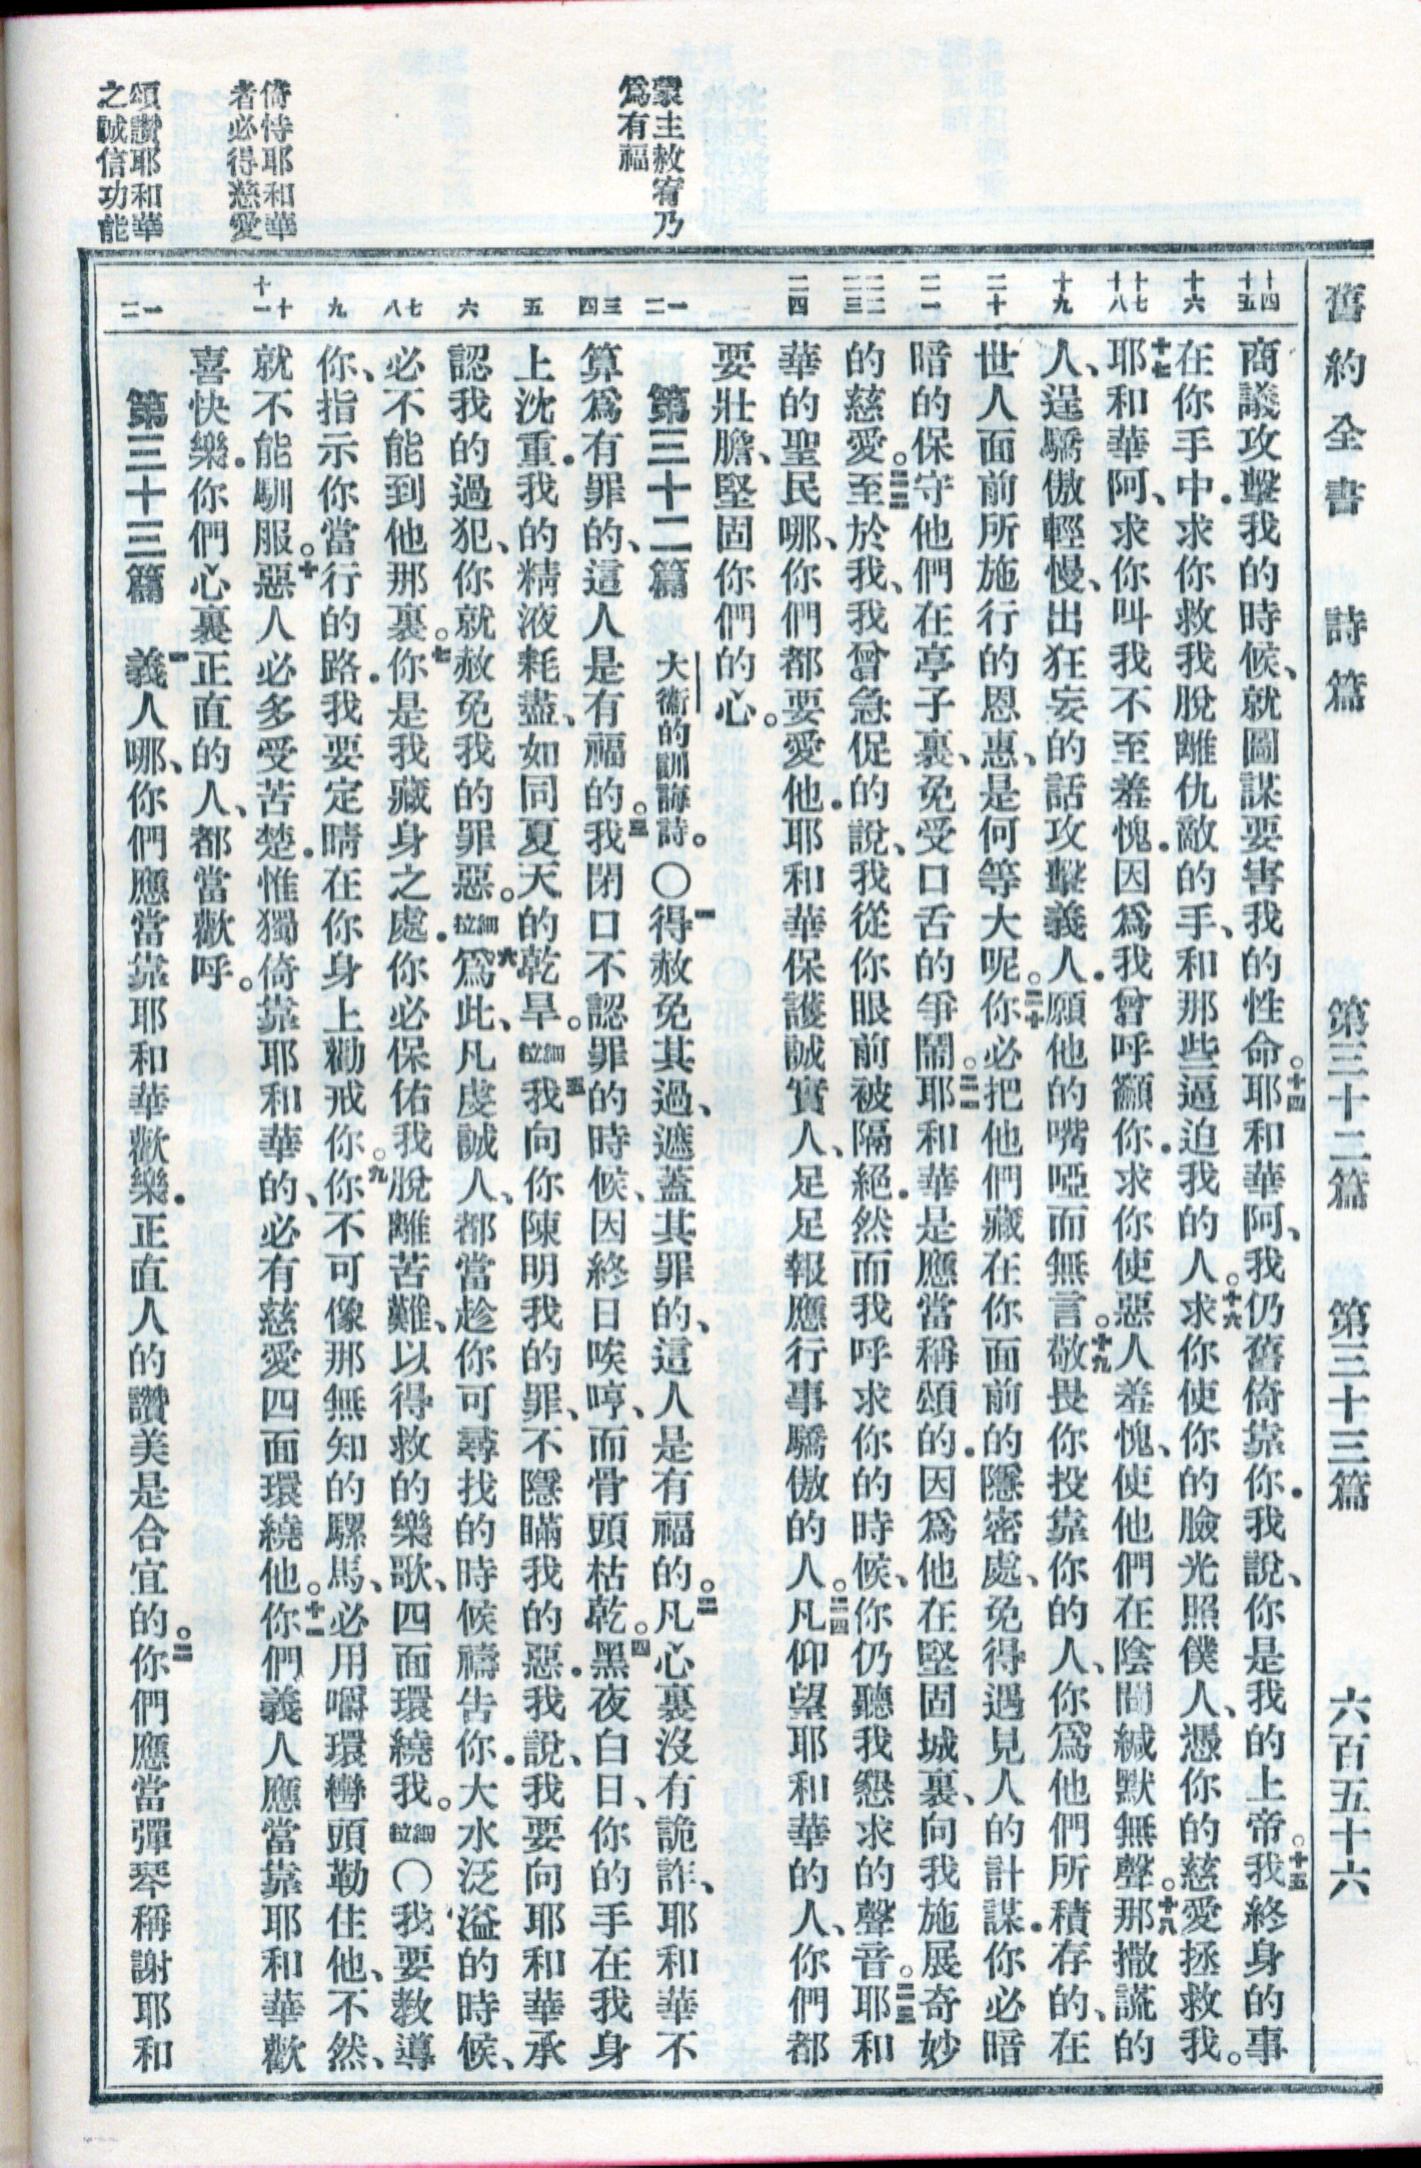 舊約全書 詩篇 第三十二篇 第三十三篇 六百五十六
蒙主赦宥乃
爲有福
倚恃耶和華
者必得慈愛
頌讚耶和華
之誠信功能
十四 十五 十六 十七 十八 十九 二十 二一 二二 二三 二四 一 二 三 四 五 六 七 八 九 十 十一 一 二
商議攻擊我的時候、就圖謀要害我的性命。十四耶和華阿、我仍舊倚靠你．我說、你是我的上帝。十五我終身的事
在你手中．求你救我脫離仇敵的手、和那些逼迫我的人。十六求你使你的臉光照僕人、憑你的慈愛拯救我。
十七耶和華阿、求你叫我不至羞愧．因爲我曾呼籲你．求你使惡人羞愧、使他們在陰間緘默無聲。十八那撒謊的
人、逞驕傲輕慢、出狂妄的話攻擊義人．願他的嘴啞而無言。十九敬畏你投靠你的人、你爲他們所積存的、在
世人面前所施行的恩惠、是何等大呢。二十你必把他們藏在你面前的隱密處、免得遇見人的計謀．你必暗
暗的保守他們在亭子裏、免受口舌的爭鬧。二一耶和華是應當稱頌的．因爲他在堅固城裏、向我施展奇妙
的慈愛。二二至於我、我曾急促的說、我從你眼前被隔絕．然而我呼求你的時候、你仍聽我懇求的聲音。二三耶和
華的聖民哪、你們都要愛他．耶和華保護誠實人、足足報應行事驕傲的人。二四凡仰望耶和華的人、你們都
要壯膽、堅固你們的心。
第三十二篇 大衞的訓誨詩。〇一得赦免其過、遮蓋其罪的、這人是有福的。二凡心裏沒有詭詐、耶和華不
算爲有罪的、這人是有福的。三我閉口不認罪的時候、因終日唉哼、而骨頭枯乾。四黑夜白日、你的手在我身
上沈重．我的精液耗盡、如同夏天的乾旱。細拉五我向你陳明我的罪、不隱瞞我的惡．我說、我要向耶和華承
認我的過犯、你就赦免我的罪惡。細拉六爲此、凡虔誠人、都當趁你可尋找的時候禱告你．大水泛溢的時候、
必不能到他那裏。七你是我藏身之處．你必保佑我脫離苦難、以得救的樂歌、四面環繞我。細拉〇我要教導
你、指示你當行的路．我要定睛在你身上勸戒你。九你不可像那無知的騾馬、必用嚼環轡頭勒住他、不然、
就不能馴服。十惡人必多受苦楚．惟獨倚靠耶和華的、必有慈愛四面環繞他。十一你們義人應當靠耶和華歡
喜快樂．你們心裏正直的人、都當歡呼。
第三十三篇 一義人哪、你們應當靠耶和華歡樂．正直人的讚美是合宜的。二你們應當彈琴稱謝耶和